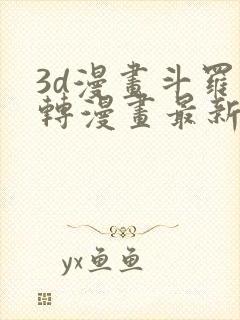 3d漫畫斗羅
轉漫畫最新
yx鱼鱼